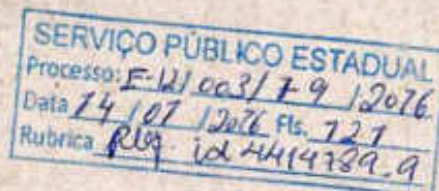 SERVIÇO PÚBLICO ESTADUAL
Processo: E-12/003/7-9/2016
Data 14/07/2016 Fls. 127
Rubrica id 4414739.9